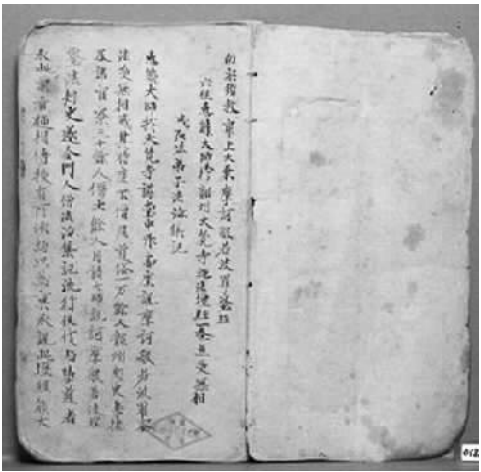 南宗頓教最上大乘摩訶般若波羅蜜經
六祖惠能大師於韶州大梵寺施法壇經一卷兼受無相
戒弘法弟子法海集記
惠能大師於大梵寺講堂中昇高座說摩訶般若波羅蜜
法受無相戒其時座下僧尼道俗一万餘人韶州刺史
及諸官寮三十餘人儒士餘人同請大師說摩訶般若波羅
蜜法刺史遂令門人僧法海集記流行後代与學道者
承此宗旨遞相傳授有所約以為稟承說此壇經能大